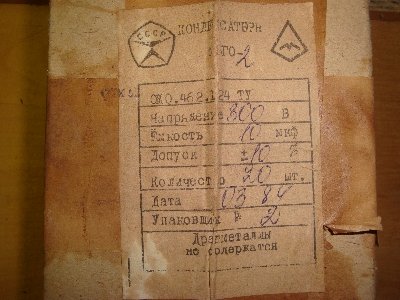 СССР
КОНДЕНСАТОРЫ
2
ОЖ0.462.124 ТУ
Напряжение 300 В
Емкость 10 мкф
Допуск ±10 %
Количество 20 шт.
Дата 03 84
Упаковщик № 2
Драгметаллы
не содержатся